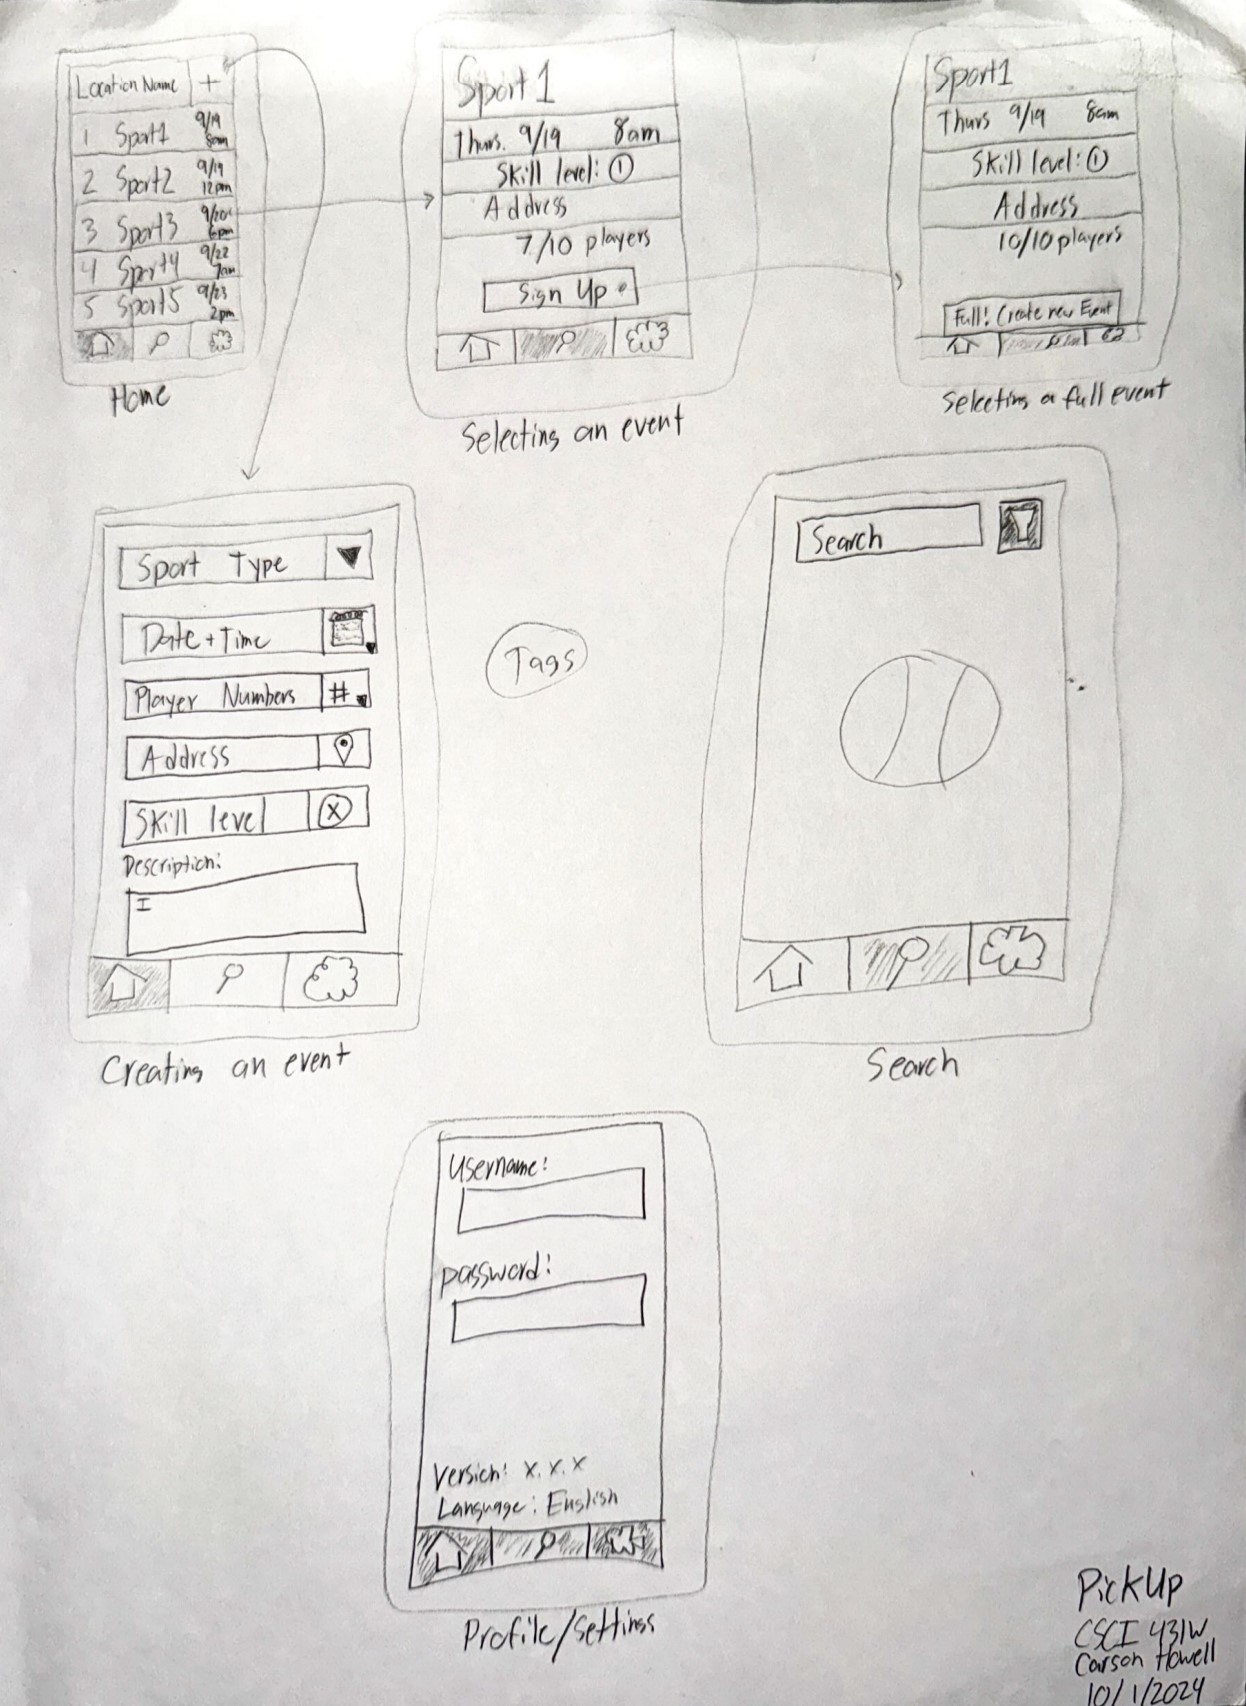 Location Name +
1 Sport1 9/19 8am
2 Sport2 9/19 12pm
3 Sport3 9/20 6pm
4 Sport4 9/22 7am
5 Sport5 9/23 2pm
Home
Sport 1
Thurs. 9/19 8am
Skill level: 1
Address
7/10 players
Sign Up
Selecting an event
Sport1
Thurs 9/19 8am
Skill level: 1
Address
10/10 players
Full! Create new Event
Selecting a full event
Sport Type
Date + Time
Player Numbers #
Address
Skill level X
Description:
I
Creating an event
Tags
Search
Search
Username:
password:
Version: X.X.X
Language: English
Profile/Settings
PickUp
CSCI 431W
Carson Howell
10/1/2024